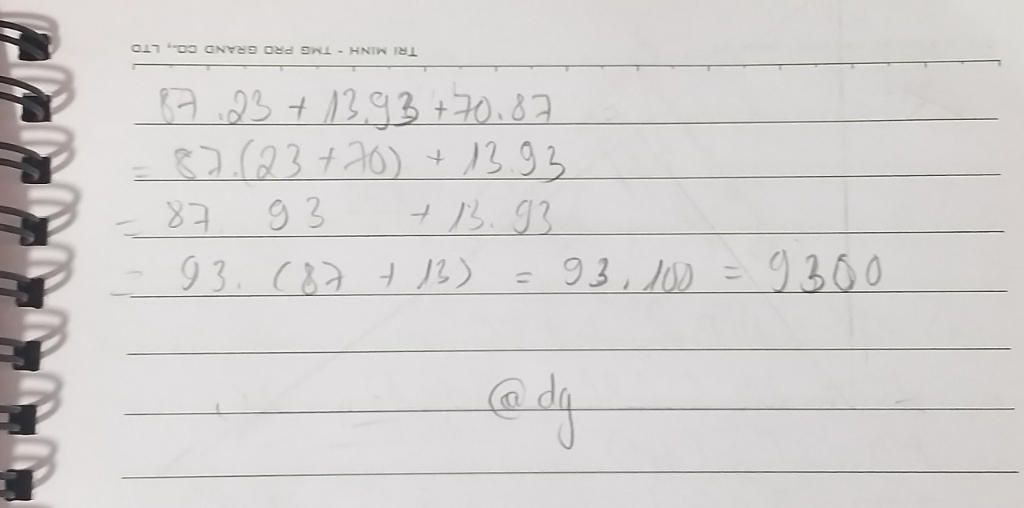 TRI MINH - TMG PRO GRAND CO., LTD
87.23 + 13.93 + 70.87
= 87.(23 + 70) + 13.93
= 87 93 + 13.93
= 93. (87 + 13) = 93.100 = 9300
@dg